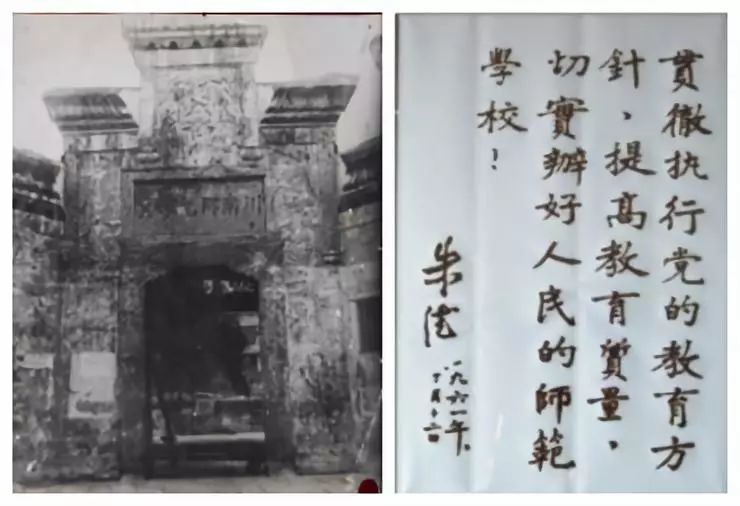 川南師
貫徹执行党的教育方
針、提高教育質量，
切實辦好人民的師範
學校！
朱德
一九六一年、